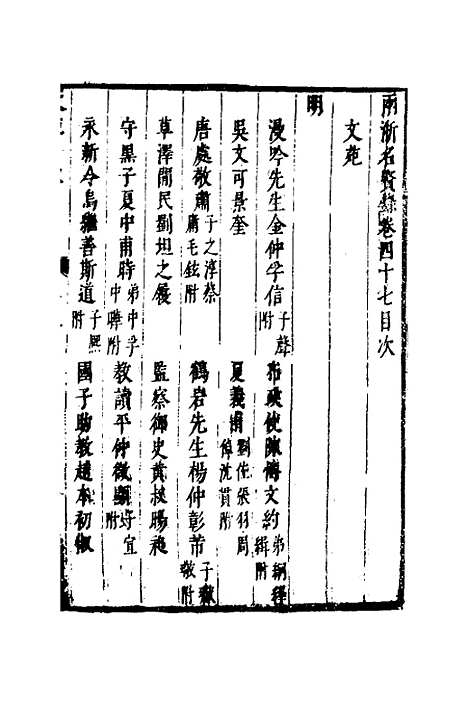 兩浙名賢錄卷四十七目次
文苑
明
漫吟先生金仲孚信子聲附
布政使陳
文約弟綱繹緝附
吳文可景奎
夏義甫
劉佐張羽周
沈貫附
唐處敬肅子之淳蔡庸毛鉉附
鶴岩先生楊仲彰芾子嶽敬附
草澤閒民劉坦之履
監察御史黃
昶
守黑子夏中甫時弟中孚中曄附
教讀平仲微顯子宜附
永新令烏繼善斯道子熙附
國子助教趙本初俶